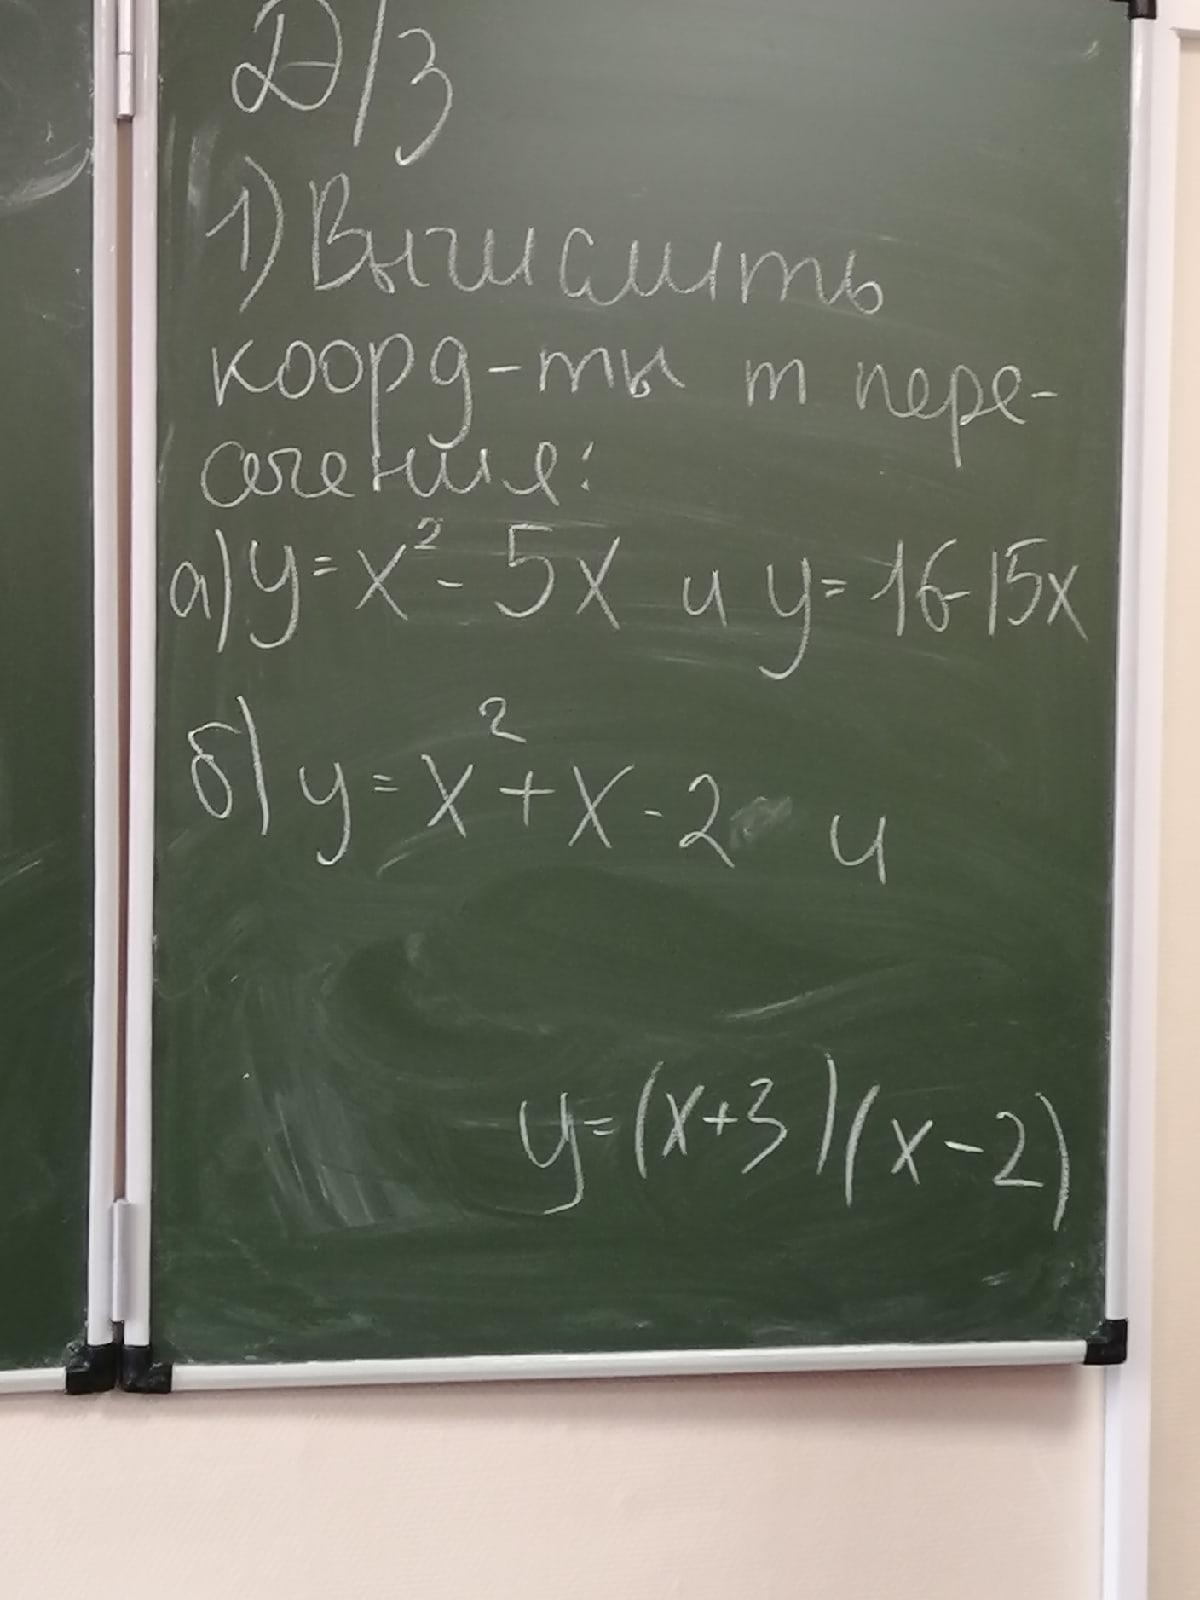 Д/З
1) Вычислить
коорд-ты т пере-
сечения:
а) y = x² - 5x и y = 16-15x
б) y = x² + x - 2 и
y = (x+3)(x-2)